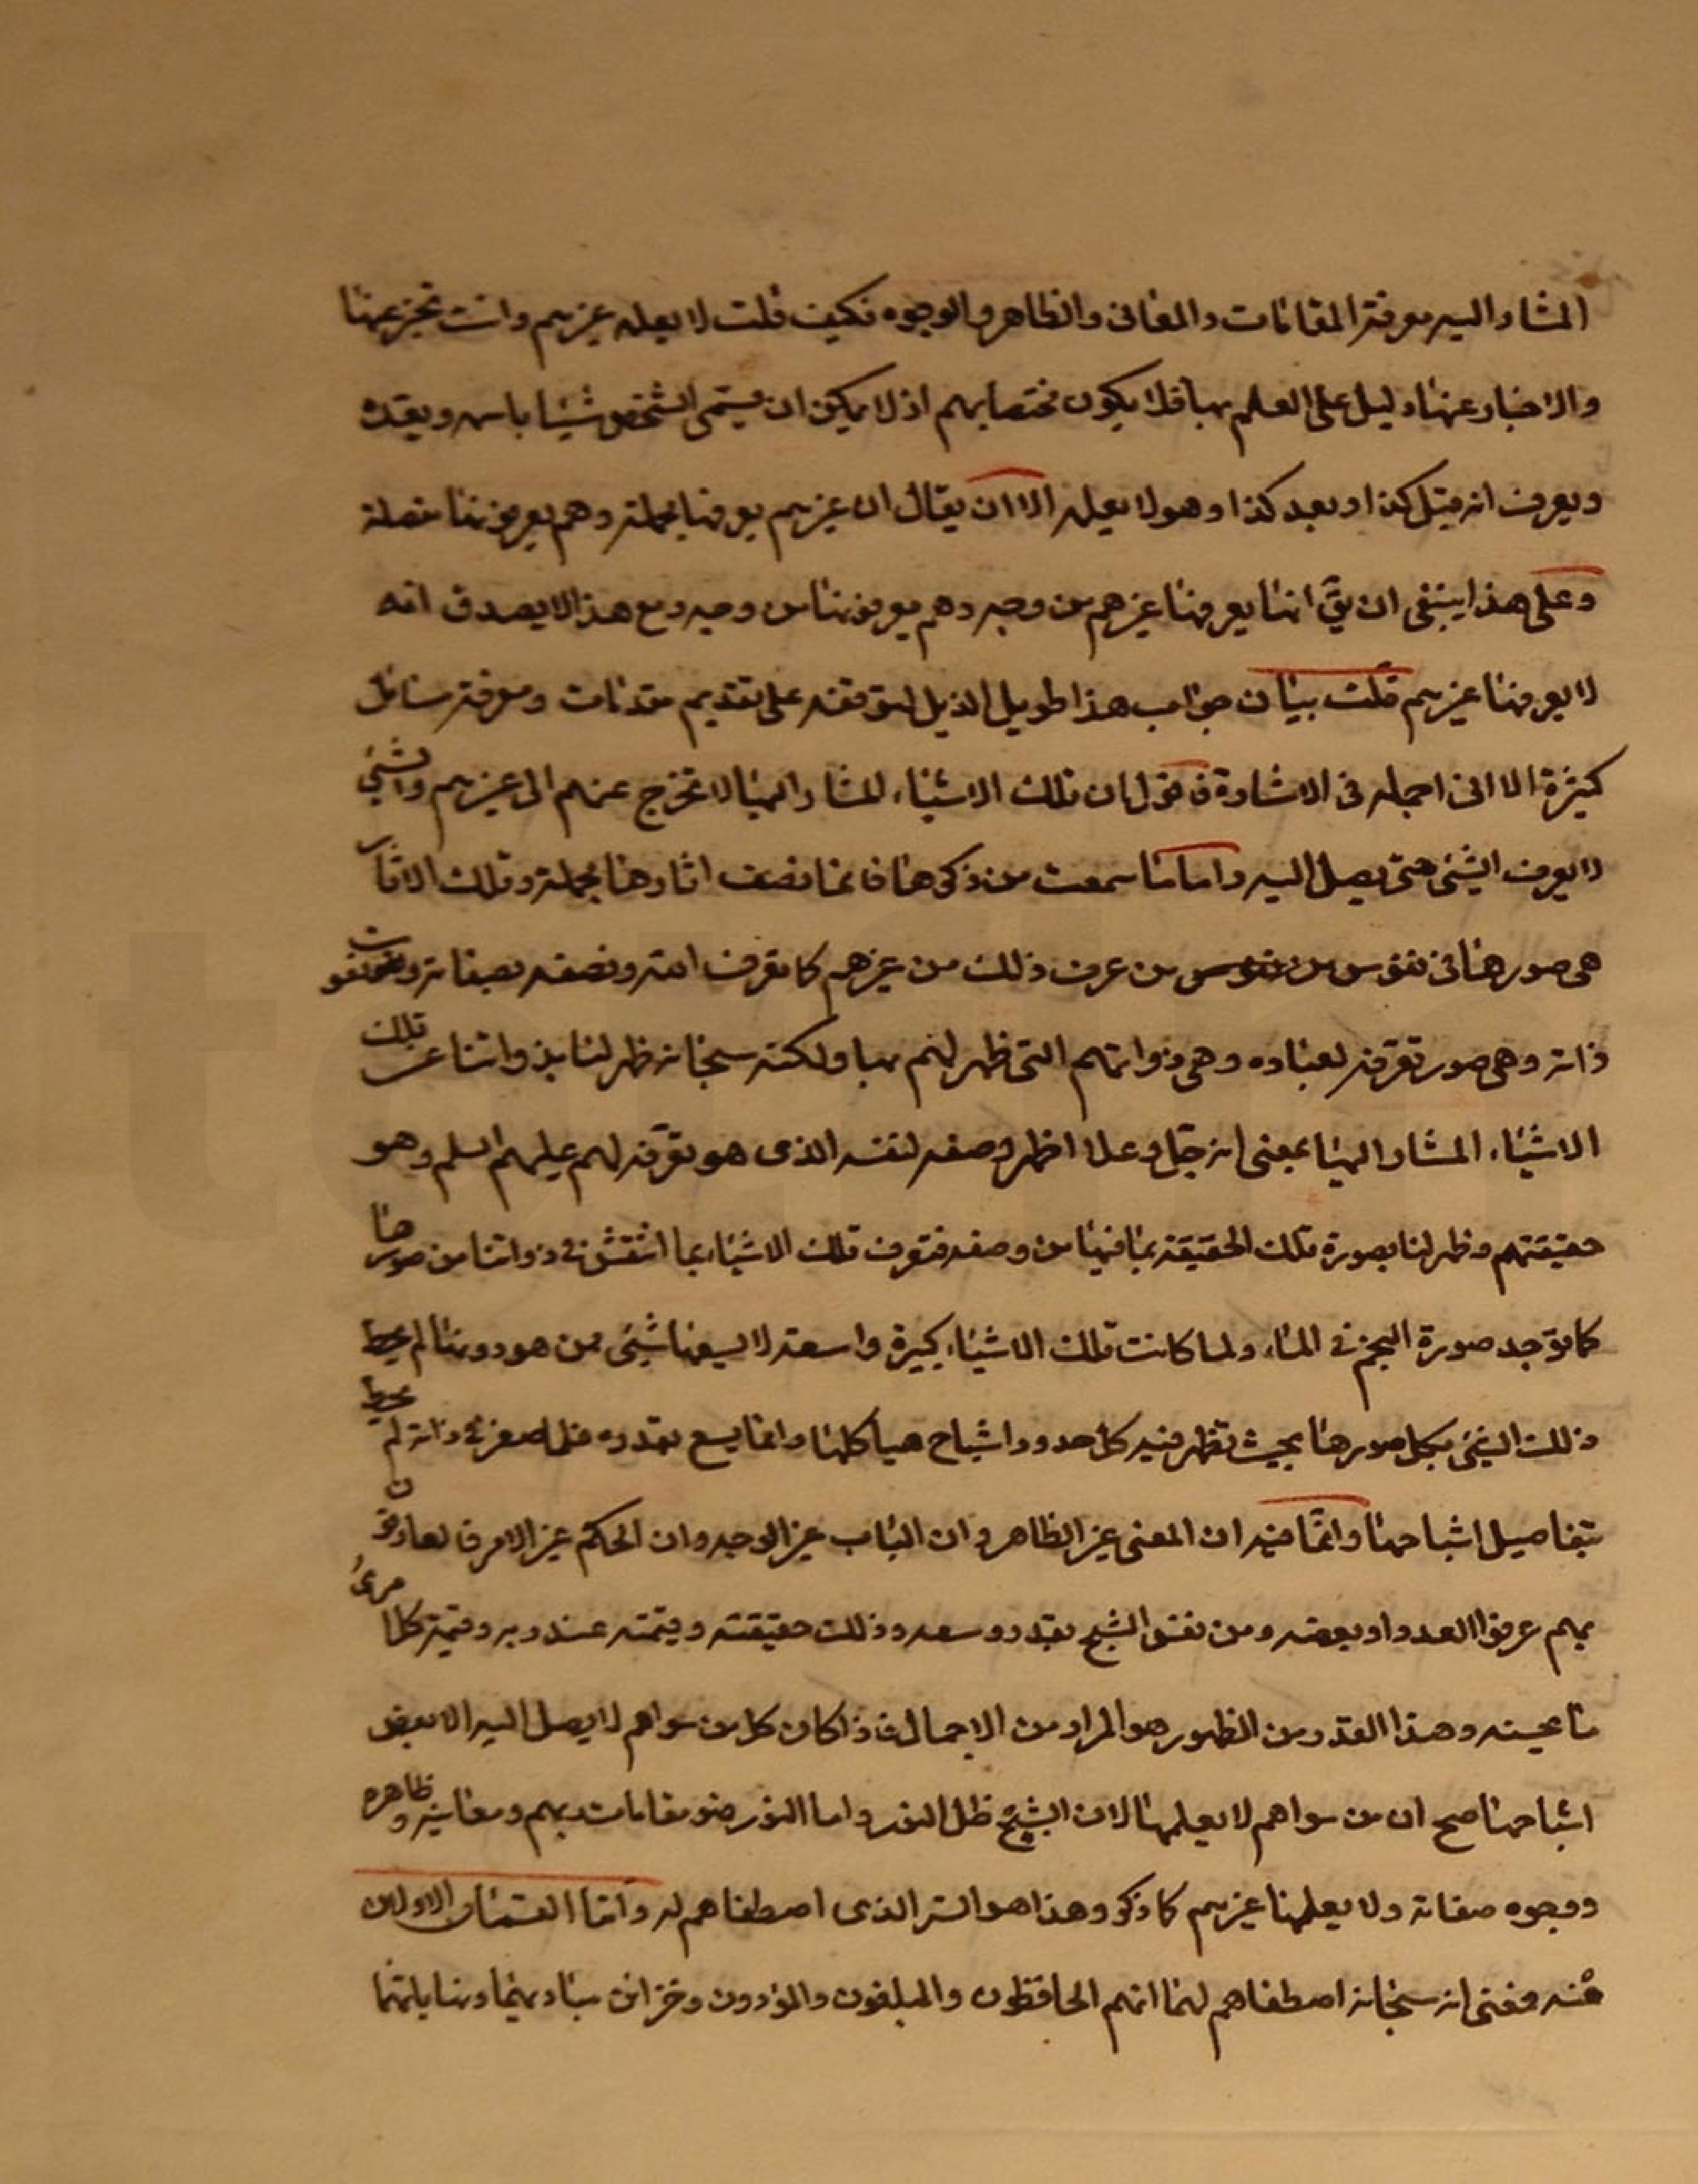 المشار اليه معرفة المقامات والمعانى والظاهر والوجوه فكيف قلت لا يعلمه غيرهم وانت تخبر عنها
والاخبار عنها دليل على العلم بها فلا يكون مختصا بهم اذ لا يمكن ان يسمى الشخص شيئا باسمه ويعده
ويعرف انه قبل كذا او بعد كذا وهو لا يعلمه الا ان يقال ان غيرهم يعرفها مجملة وهم يعرفونها مفصلة
وعلى هذا ينبغى ان يق انها يعرفها غيرهم من وجه وهم يعرفونها من وجه ومع هذا لا يصدق انه
لا يعرفها غيرهم قلت بيان جواب هذا طويل الذيل لتوقفه على تقديم مقدمات ومعرفة مسائل
كثيرة الا انى اجمله فى الاشارة فنقول ان تلك الاشياء المشار اليها لا تخرج عنهم الى غيرهم والشئ
لا يعرف الشئ حتى يصل اليه واما ما سمعت من ذكرها فانما نصف اثارها مجملة وتلك الاثار
هى صورها فى نفوس من عرف ذلك من غيرهم كما تعرف الله وتصفه بصفاته ونعوت
ذاته وهى صور تعرفه لعباده وهى ذواتهم التى ظهر لهم بها ولكنه سبحانه ظهر لنا بذواتنا عن تلك
الاشياء المشار اليها بمعنى انه جل وعلا اظهر وصفه لنفسه الذى هو تعرفه لهم عليهم السلم وهو
حقيقتهم وظهر لنا بصورة تلك الحقيقة بما فيها من وصفه فتعرف تلك الاشياء بما انتقش فى ذواتنا من صورها
كما توجد صورة النجم فى الماء ولما كانت تلك الاشياء كبيرة واسعة لا يسعها شئ ممن هو دونها لم يحط
ذلك الشئ بكل صورها بحيث تظهر فيه كل حدود اشباح هياكلها وانما يسع بقدره فلما صغر فى ذاته لم يحط
بتفاصيل اشباحها وانما فيه ان المعنى غير الظاهر وان الباب غير الوجه وان الحكم غير الامر فالعارفون
بهم عرفوا العدد او بعضه ومن نفس الشبح بقدر وسعه وذلك حقيقته وقيمته عند ربه وقيمة كل امرئ
ما يحسنه وهذا القدر من الظهور هو المراد من الاجمال فاذا كان كل من سواهم لا يصل اليه الا بعض
اشباحها صح ان من سواهم لا يعلمها لان الشبح ظل النور واما النور فهو مقامات بهم ومعانيه وظاهره
ووجوه صفاته ولا يعلمها غيرهم كما ذكر وهذا هو السر الذى اصطفاهم له واما القسمان الاولان
منه فمعنى انه سبحانه اصطفاهم لهما انهم الحافظون والمبلغون والمؤدون وخزائن مباديهما ونهاياتهما